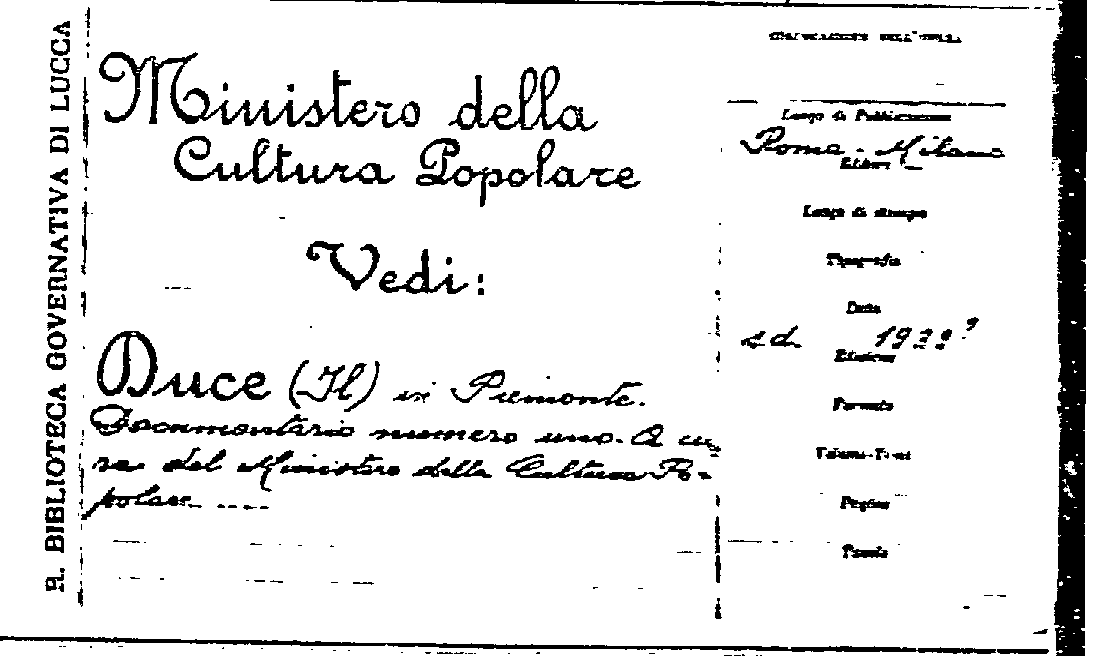 R. BIBLIOTECA GOVERNATIVA DI LUCCA
Ministero della
Cultura Popolare
Vedi:
Duce (Il) in Piemonte.
Documentario numero uno. A cu-
ra del Ministero della Cultura Po-
polare ....
COLLOCAZIONE DELL'OPERA
Luogo di Pubblicazione
Roma - Milano
Editore
Luogo di stampa
Tipografia
Data
s.d.
Edizione
Formato
Volume-Tomi
Pagine
Tavole